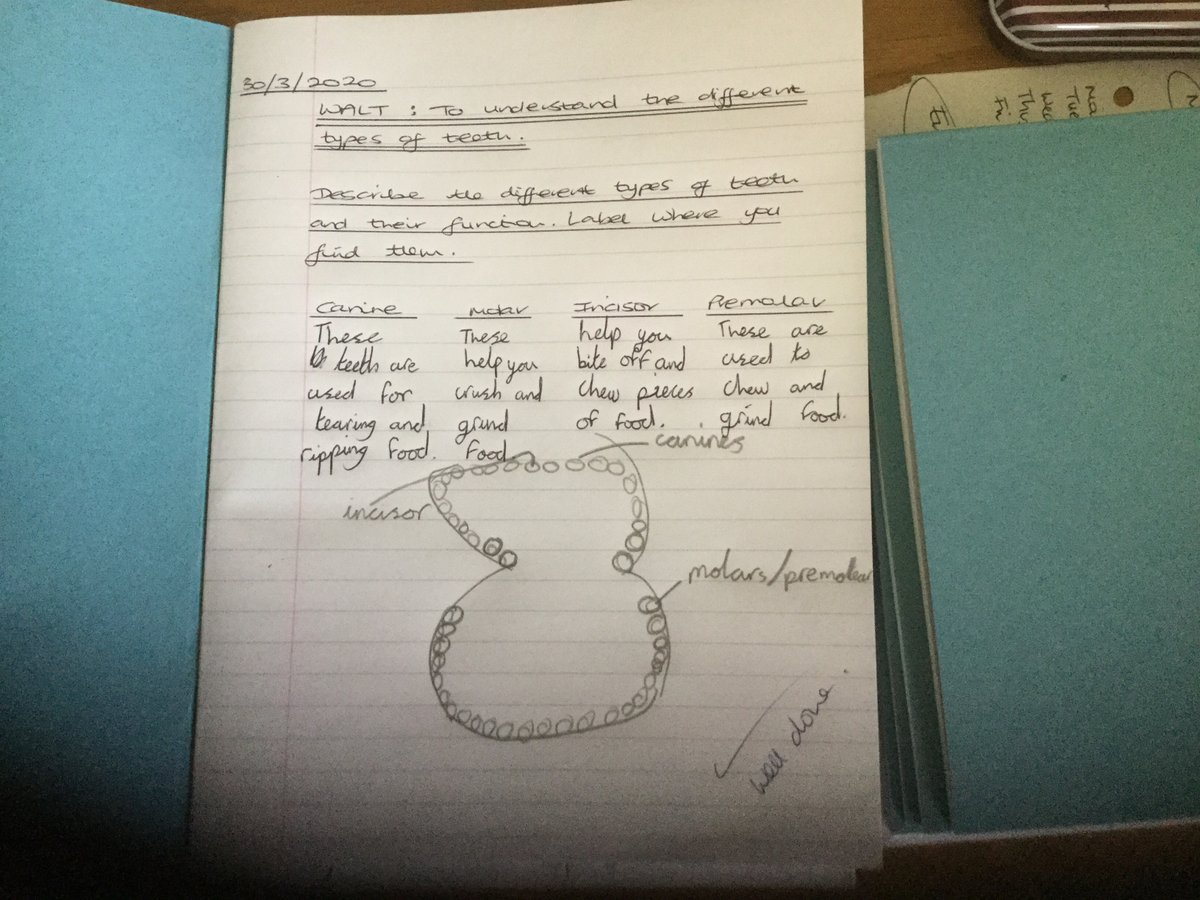 30/3/2020
WALT : To understand the different
types of teeth.
Describe the different types of teeth
and their function. Label where you
find them.
Canine
These
teeth are
used for
tearing and
ripping food.
Molar
These
help you
crush and
grind
food
Incisor
help you
bite off and
chew pieces
of food.
Premolar
These are
used to
chew and
grind food.
canines
incisor
molars/premolear
well done.
Na
Tue
Wed
Th
Fri